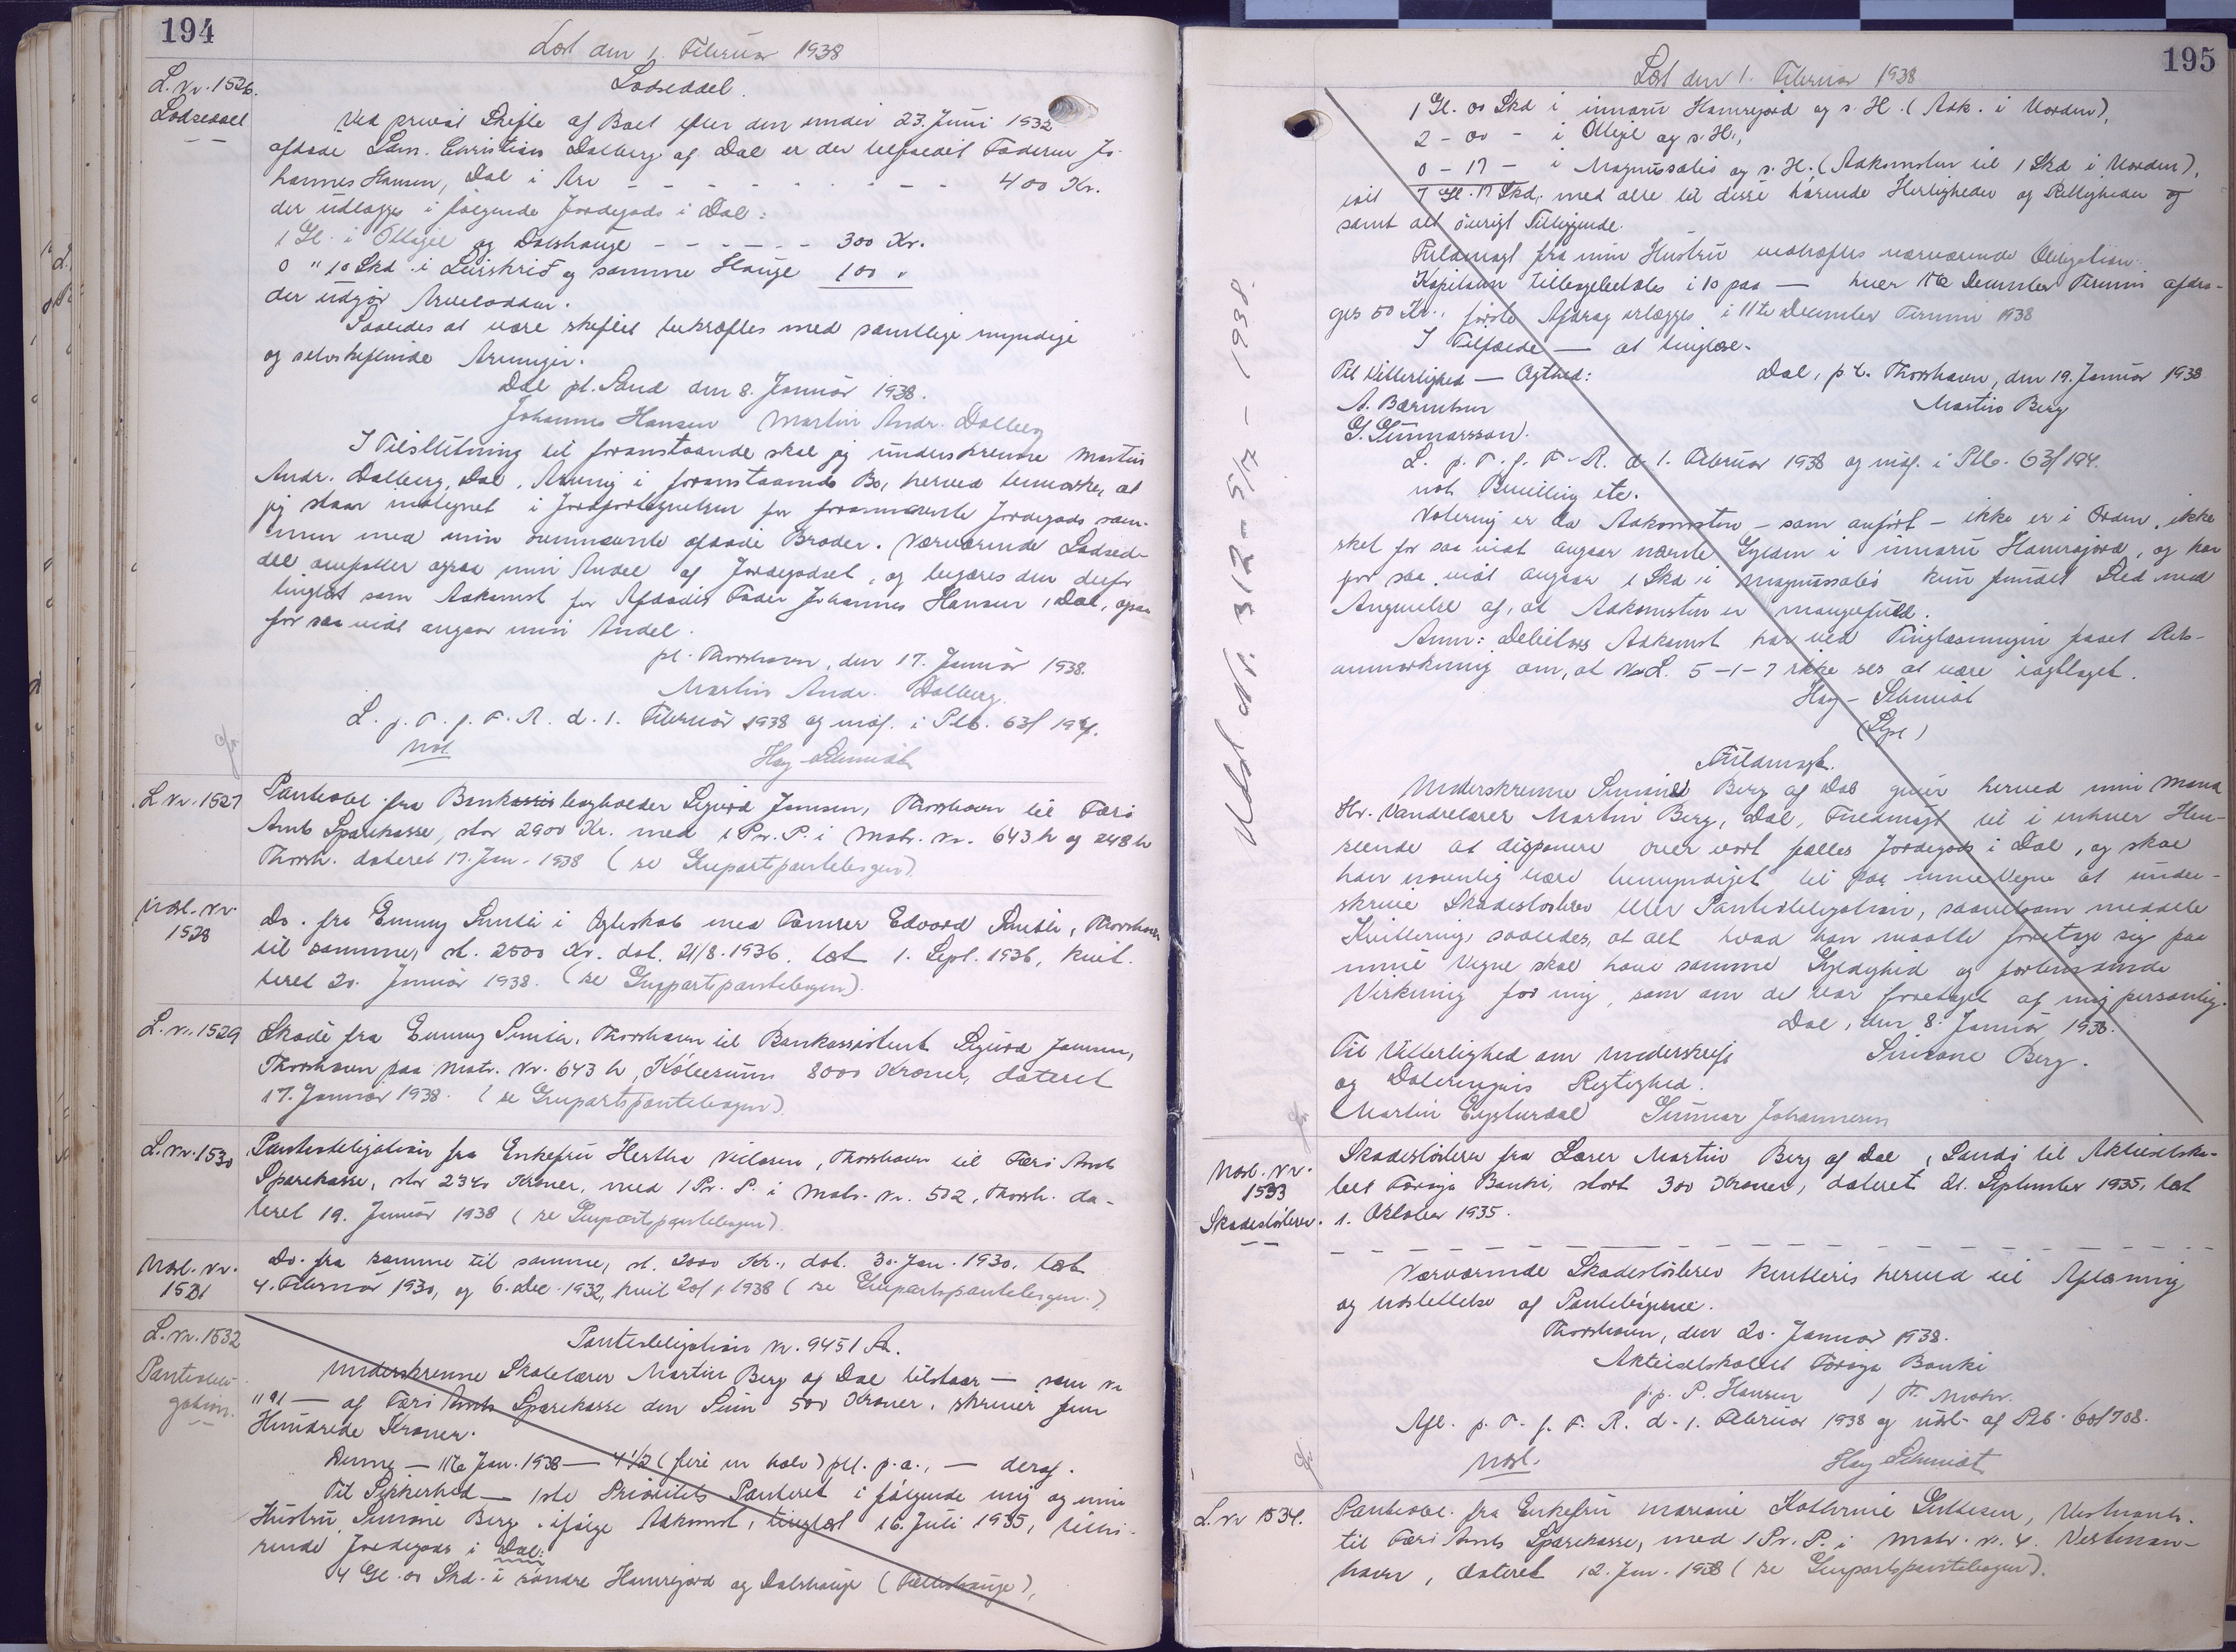 194
Læst den 1. Februar 1938
L. Nr. 1526.
Lodseddel
Lodseddel.
Ved privat Skifte af Boet efter den under 23. Juni 1932
afdøde Sam. Christian Dalberg af Dal er der tilfaldet Faderen Jo-
hannes Hansen, Dal i Arv - - - - - - - - - 400 Kr.
der udlægges i følgende Jordegods i Dal:
1 Gl. i Ollagil og Dalshauge - - - - - - 300 Kr.
0 " 10 Skd. i Leirskrid og samme Hauge 100 "
der udgør Arvelodden.
Saaledes at være skiftet bekræftes med samtlige myndige
og selvskiftende Arvinger.
Dal pt. Sand den 8. Januar 1938.
Johannes Hansen Martin Andr. Dalberg
I Tilslutning til foranstaaende skal jeg underskrevne Martin
Andr. Dalberg, Dal, Arving i foranstaaende Bo, herved bemærke, at
jeg staar indtegnet i Jordfortegnelsen for forannævnte Jordegods sam-
men med min ovennævnte afdøde Broder. Nærværende Lodsed-
del omfatter ogsaa min Andel af Jordegodset, og begæres den derfor
tinglæst som Adkomst for Afdødes Fader Johannes Hansen, Dal, ogsaa
for saa vidt angaar min Andel.
pt. Thorshavn, den 17. Januar 1938.
Martin Andr. Dalberg.
L. p. T. f. F. R. d. 1. Februar 1938 og indf. i Ptb. 63/194.
not. Hay-Schmidt
L. Nr. 1527
Panteobl. fra Bankbogholder Sigurd Joensen, Thorshavn til Færø
Amts Sparekasse, stor 2900 Kr. med 1 Pr. P. i Matr. Nr. 643 h og 248 h
Thorsh. dateret 17. Jan. 1938 (se Genpartspantebogen).
Udsl. Nr.
1528
Do. fra Emmy Smith i Ægteskab med Tømrer Edvard Smith, Thorshavn
til samme, st. 2500 Kr. dat. 21/8. 1936. læst 1. Sept. 1936, kvit-
teret 20. Januar 1938. (se Genpartspantebogen).
L. Nr. 1529
Skøde fra Emmy Smith, Thorshavn til Bankassistent Sigurd Joensen,
Thorshavn paa Matr. Nr. 643 h, Købesum 8000 Kroner, dateret
17. Januar 1938. (se Genpartspantebogen).
L. Nr. 1530
Panteobligation fra Enkefru Hertha Nielsen, Thorshavn til Færø Amts
Sparekasse, stor 2340 Kroner, med 1 Pr. P. i Matr. Nr. 502, Thorsh. da-
teret 19. Januar 1938 (se Genpartspantebogen).
Udsl. Nr.
1531
Do. fra samme til samme, st. 2000 Kr., dat. 30. Jan. 1930. læst
4. Februar 1930, og 6. Dec. 1932, kvit 20/1 1938 (se Genpartspantebogen.)
L. Nr. 1532
Panteobli-
gation.
Panteobligation Nr. 9451 A.
Underskrevne Skolelærer Martin Berg af Dal tilstaar — som Nr
1191 — af Færø Amts Sparekasse den Sum 500 Kroner, skriver fem
Hundrede Kroner.
Denne — 11te Jan. 1938 — 4 1/2 (fire en halv) pCt. p.a., — deraf.
Til Sikkerhed — 1ste Prioritets Panteret i følgende mig og min
Hustru, Simone Berg ifølge Adkomst, tinglæst 16. Juli 1935, tilhø-
rende Jordegods i Dal:
4 Gl. 00 Skd. i søndre Hamrejord og Dalshauge (Fælleshauge),
195
Læst den 1. Februar 1938
1 Gl. 00 Skd i innaru Hamrejord og s. H. (Adk. i Uorden),
2 - 00 - i Ollegil og s. H.,
0 - 17 - i Magnussatis og s. H. (Adkomsten til 1 Skd i Uorden),
ialt 7 Gl. 17 Skd, med alle til disse hørende Herligheder og Rettigheder og
samt alt øvrigt Tilliggende.
Fuldmagt fra min Hustru vedhæftes nærværende Obligation.
Kapitalen tilbagebetales i 10 paa — hver 11te December Termin afdra-
ges 50 Kr., første Afdrag erlægges i 11te December Termin 1938
I Tilfælde — at tinglæse.
Til Vitterlighed — Ægthed: Dal, p.t. Thorshavn, den 19. Januar 1938
A. Bærentsen Martin Berg
G. Gunnarsson.
L. p. T. f. F. R. d. 1. Februar 1938 og indf. i Ptb. 63/194.
not. Bevilling etc.
Notering er da Adkomsten - som anført - ikke er i Orden, ikke
sket for saa vidt angaar nævnte Gylden i innaru Hamrejord, og har
for saa vidt angaar 1 Skd i Magnussatis kun fundet Sted med
Angivelse af, at Adkomsten er mangelfuld.
Anm: Debitors Adkomst har ved Tinglæsningen faaet Rets-
anmærkning om, at N.L. 5-1-7 ikke ses at være iagttaget.
Hay-Schmidt
Udsl. Nr. 312 - 5/7 - 1938.
Fuldmagt.
Underskrevne Simone Berg af Dal giver herved min Mand
Hr. Vandrelærer Martin Berg, Dal, Fuldmagt til i enhver Hen-
seende at disponere over vort fælles Jordegods i Dal, og skal
han navnlig være bemyndiget til paa mine Vegne at under-
skrive Skadesløsbrev eller Panteobligation, saavelsom meddele
Kvittering, saaledes, at alt hvad han maatte foretage sig paa
mine Vegne skal have samme Gyldighed og forbindende
Virkning for mig, som om det var foretaget af mig personlig.
Dal, den 8. Januar 1938.
Til Vitterlighed om Underskrift Simone Berg.
og Dateringens Rigtighed.
Martin Eysturdal Gunnar Johannesen
Udsl. Nr.
1533
Skadesløsbrev.
Skadesløsbrev fra Lærer Martin Berg af Dal, Sandø til Aktieselska-
bet Føroya Banki, stort 300 Kroner, dateret 21. September 1935, læst
1. Oktober 1935.
Nærværende Skadesløsbrev kvitteres herved til Aflæsning
og Udslettelse af Pantebøgerne.
Thorshavn, den 20. Januar 1938.
Aktieselskabet Føroya Banki
p.p. P. Hansen
Afl. p. T. f. F. R. d. 1. Februar 1938 og udsl. af Ptb. 60/708.
Udsl. Hay Schmidt
L. Nr 1534.
Panteobl. fra Enkefru Mariane Kathrine Guttesen, Vestmanh.
til Færø Amts Sparekasse, med 1 Pr. P. i Matr. Nr. 4. Vestman-
havn, dateret 12. Jan. 1938 (se Genpartspantebogen).